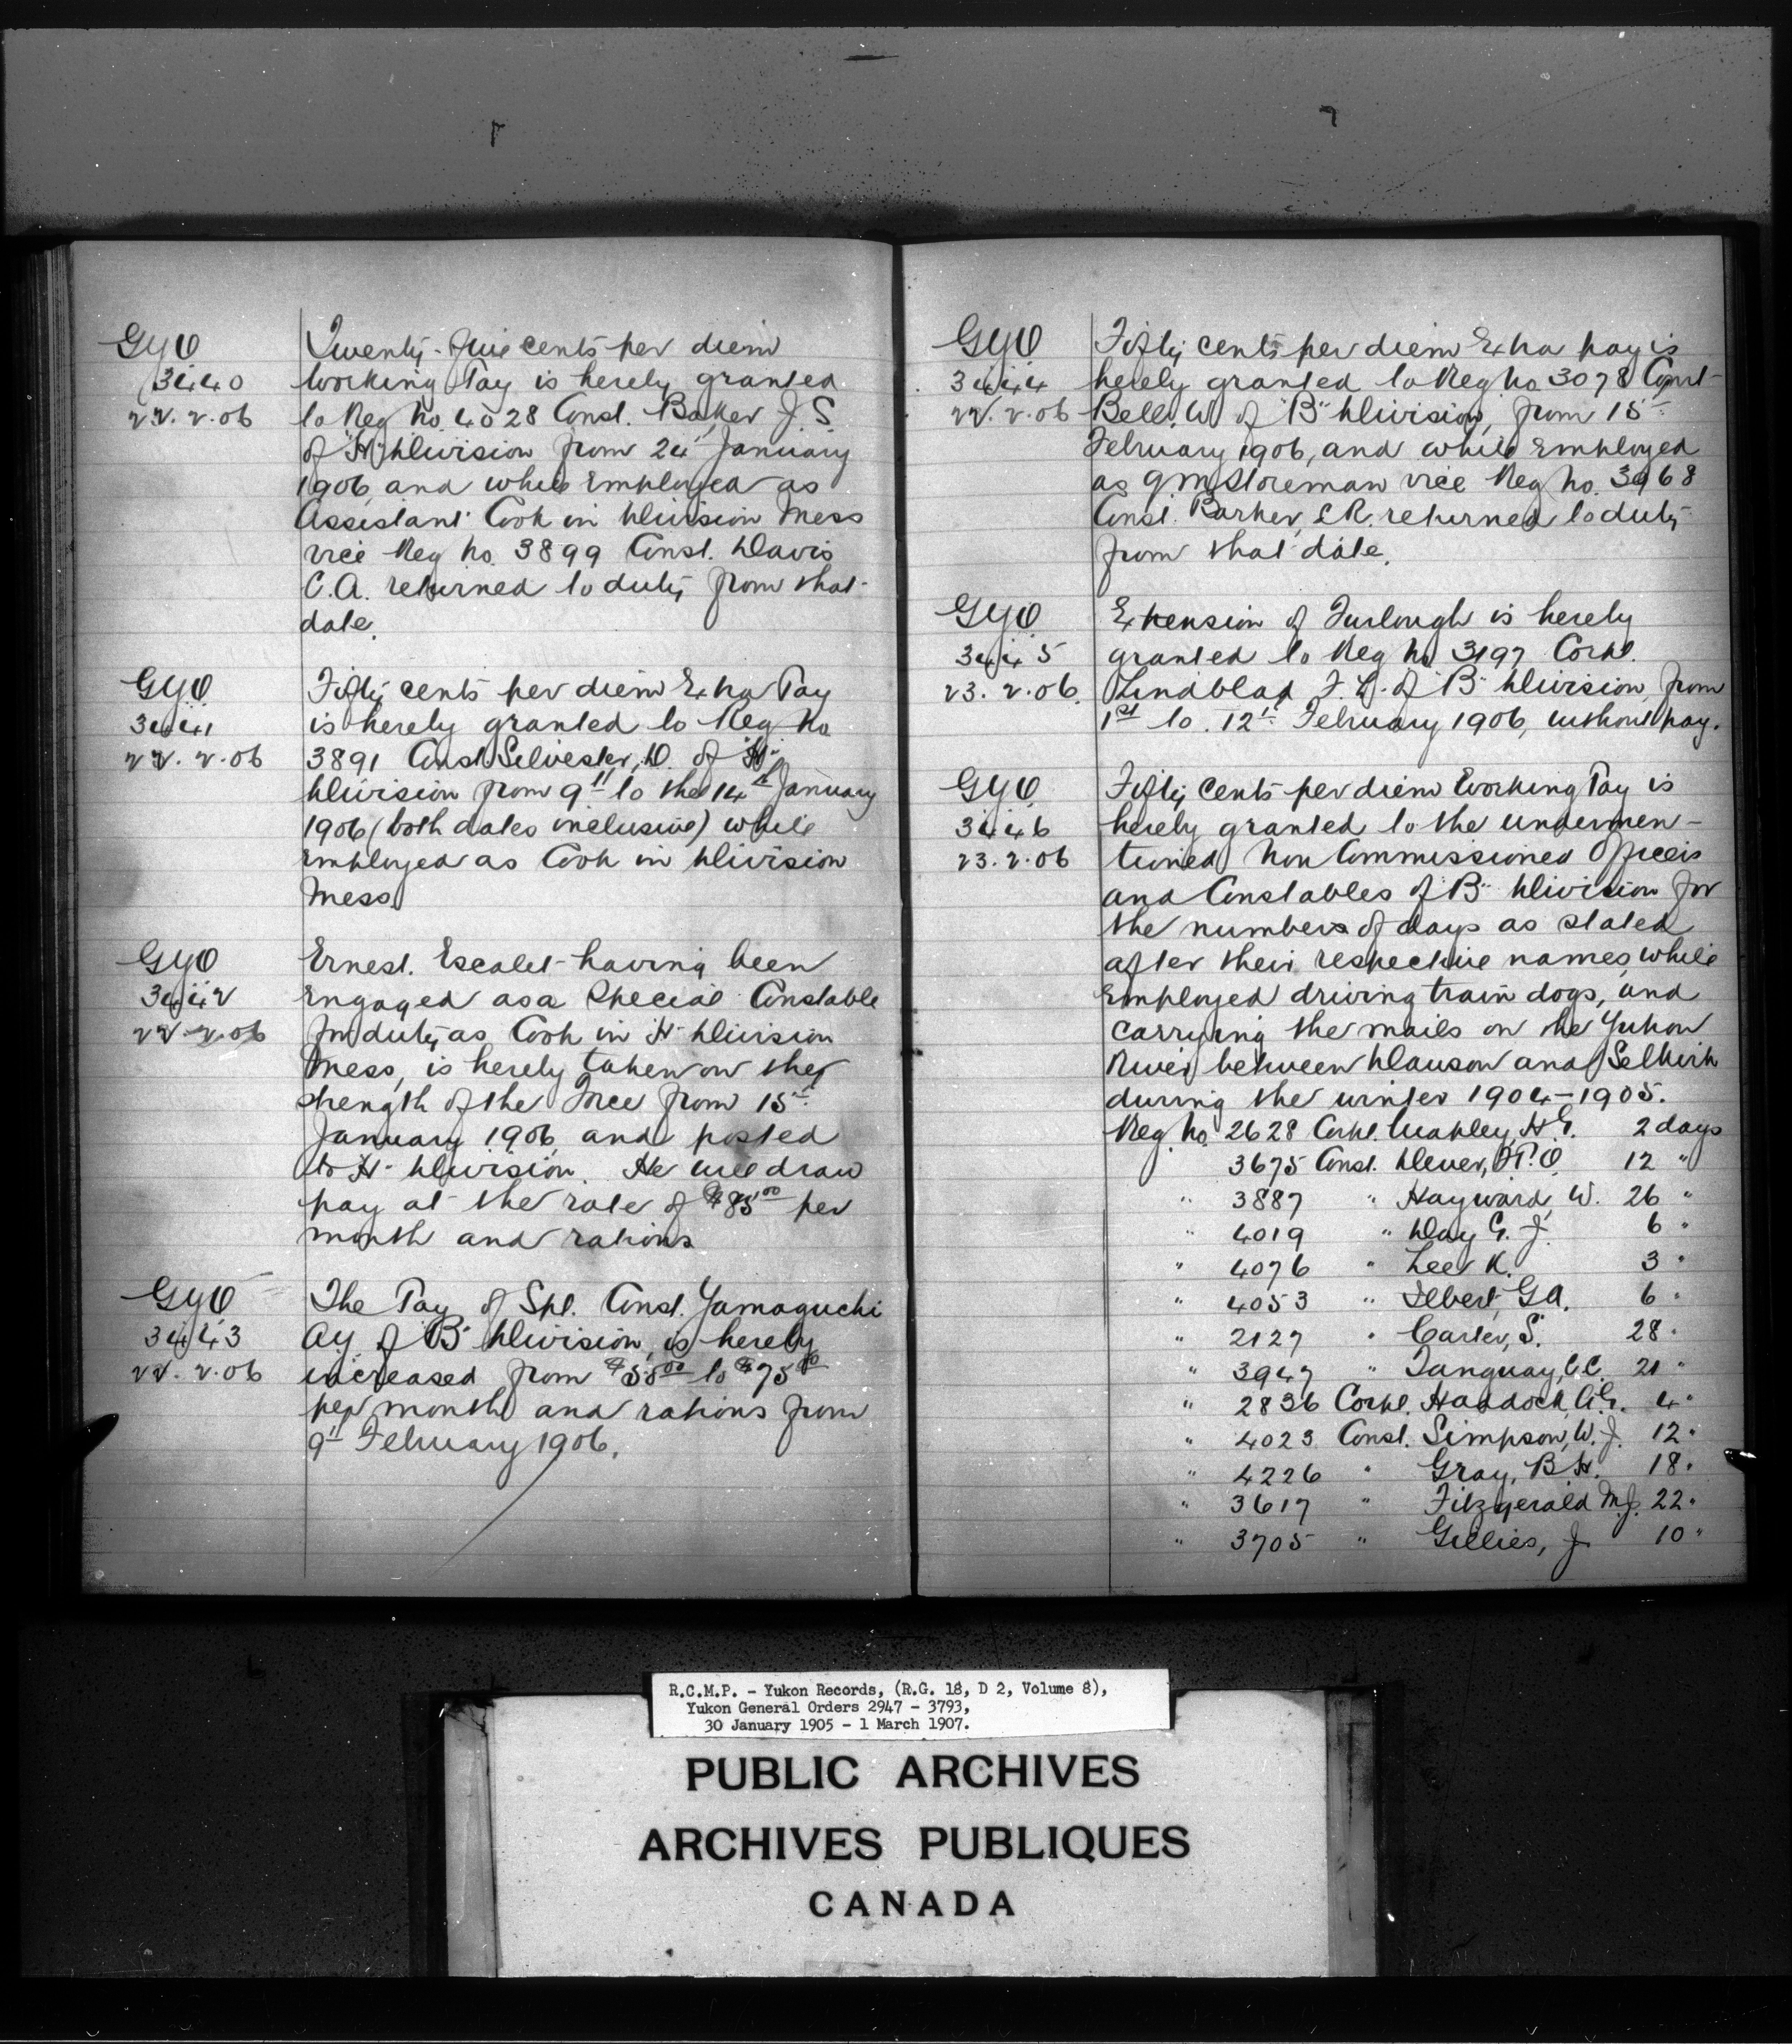 GYO
3440
22.2.06
Twenty-five cents per diem
Working Pay is hereby granted
to Reg No. 4028 Const. Baker J.S.
of "H" Division from 24th January
1906, and while Employed as
Assistant Cook in Division Mess
vice Reg No. 3899 Const. Davis
C.A. returned to duty from that
date.
GYO
3441
22.2.06
Fifty cents per diem Extra Pay
is hereby granted to Reg. No
3891 Const Selvester, D. of "H"
Division from 9th to the 14th January
1906 (both dates inclusive) while
employed as Cook in Division
Mess
GYO
3442
22.2.06
Ernest. Escalet having been
Engaged as a Special Constable
for duty as Cook in H Division
Mess, is hereby taken on the
strength of the Force from 15th
January 1906 and posted
to H Division. He will draw
pay at the rate of $85.00 per
month and rations
GYO
3443
22.2.06
The Pay of Spl. Const. Yamaguchi
Ay of "B" Division, is hereby
increased from $55.00 to $75.00
per month and rations from
9th February 1906.
GYO
3444
22.2.06
Fifty cents per diem Extra pay is
hereby granted to Reg No 3078 Const
Bell, W of "B" Division, from 15th
February 1906, and while Employed
as QM Storeman vice Reg No. 3968
Const. Barker, L.R. returned to duty
from that date.
GYO
3445
23.2.06
Extension of Furlough is hereby
granted to Reg No 3197 Corpl.
Lindblad F.L. of "B" Division, from
1st to 12th February 1906, without pay.
GYO
3446
23.2.06
Fifty Cents per diem Working Pay is
hereby granted to the undermen-
tioned Non Commissioned Officers
and Constables of "B" Division for
the numbers of days as stated
after their respective names, while
Employed driving train dogs, and
carrying the mails on the Yukon
River between Dawson and Selkirk
during the winter 1904-1905.
Reg No. 2628 Corpl. Mapley, H.G. 2 days
3675 Const. Dever, P.O. 12 "
" 3887 " Hayward, W. 26 "
" 4019 " Day G. J. 6 "
" 4076 " Lee K. 3 "
" 4053 " Ilbert, G.A. 6 "
" 2127 " Carter, S. 28 "
" 3947 " Tanguay, C.C. 21 "
" 2836 Corpl. Haddock, A.G. 4 "
" 4023 Const. Simpson, W. J. 12 "
" 4226 " Gray, B.H. 18 "
" 3617 " Fitzgerald M.J. 22 "
" 3705 " Gillies, J 10 "
R.C.M.P. - Yukon Records, (R.G. 18, D 2, Volume 8),
Yukon General Orders 2947 - 3793,
30 January 1905 - 1 March 1907.
PUBLIC ARCHIVES
ARCHIVES PUBLIQUES
CANADA